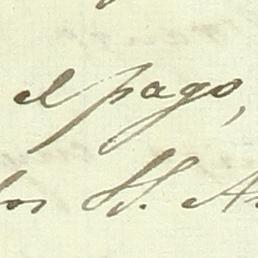 el pago,
los SS. A